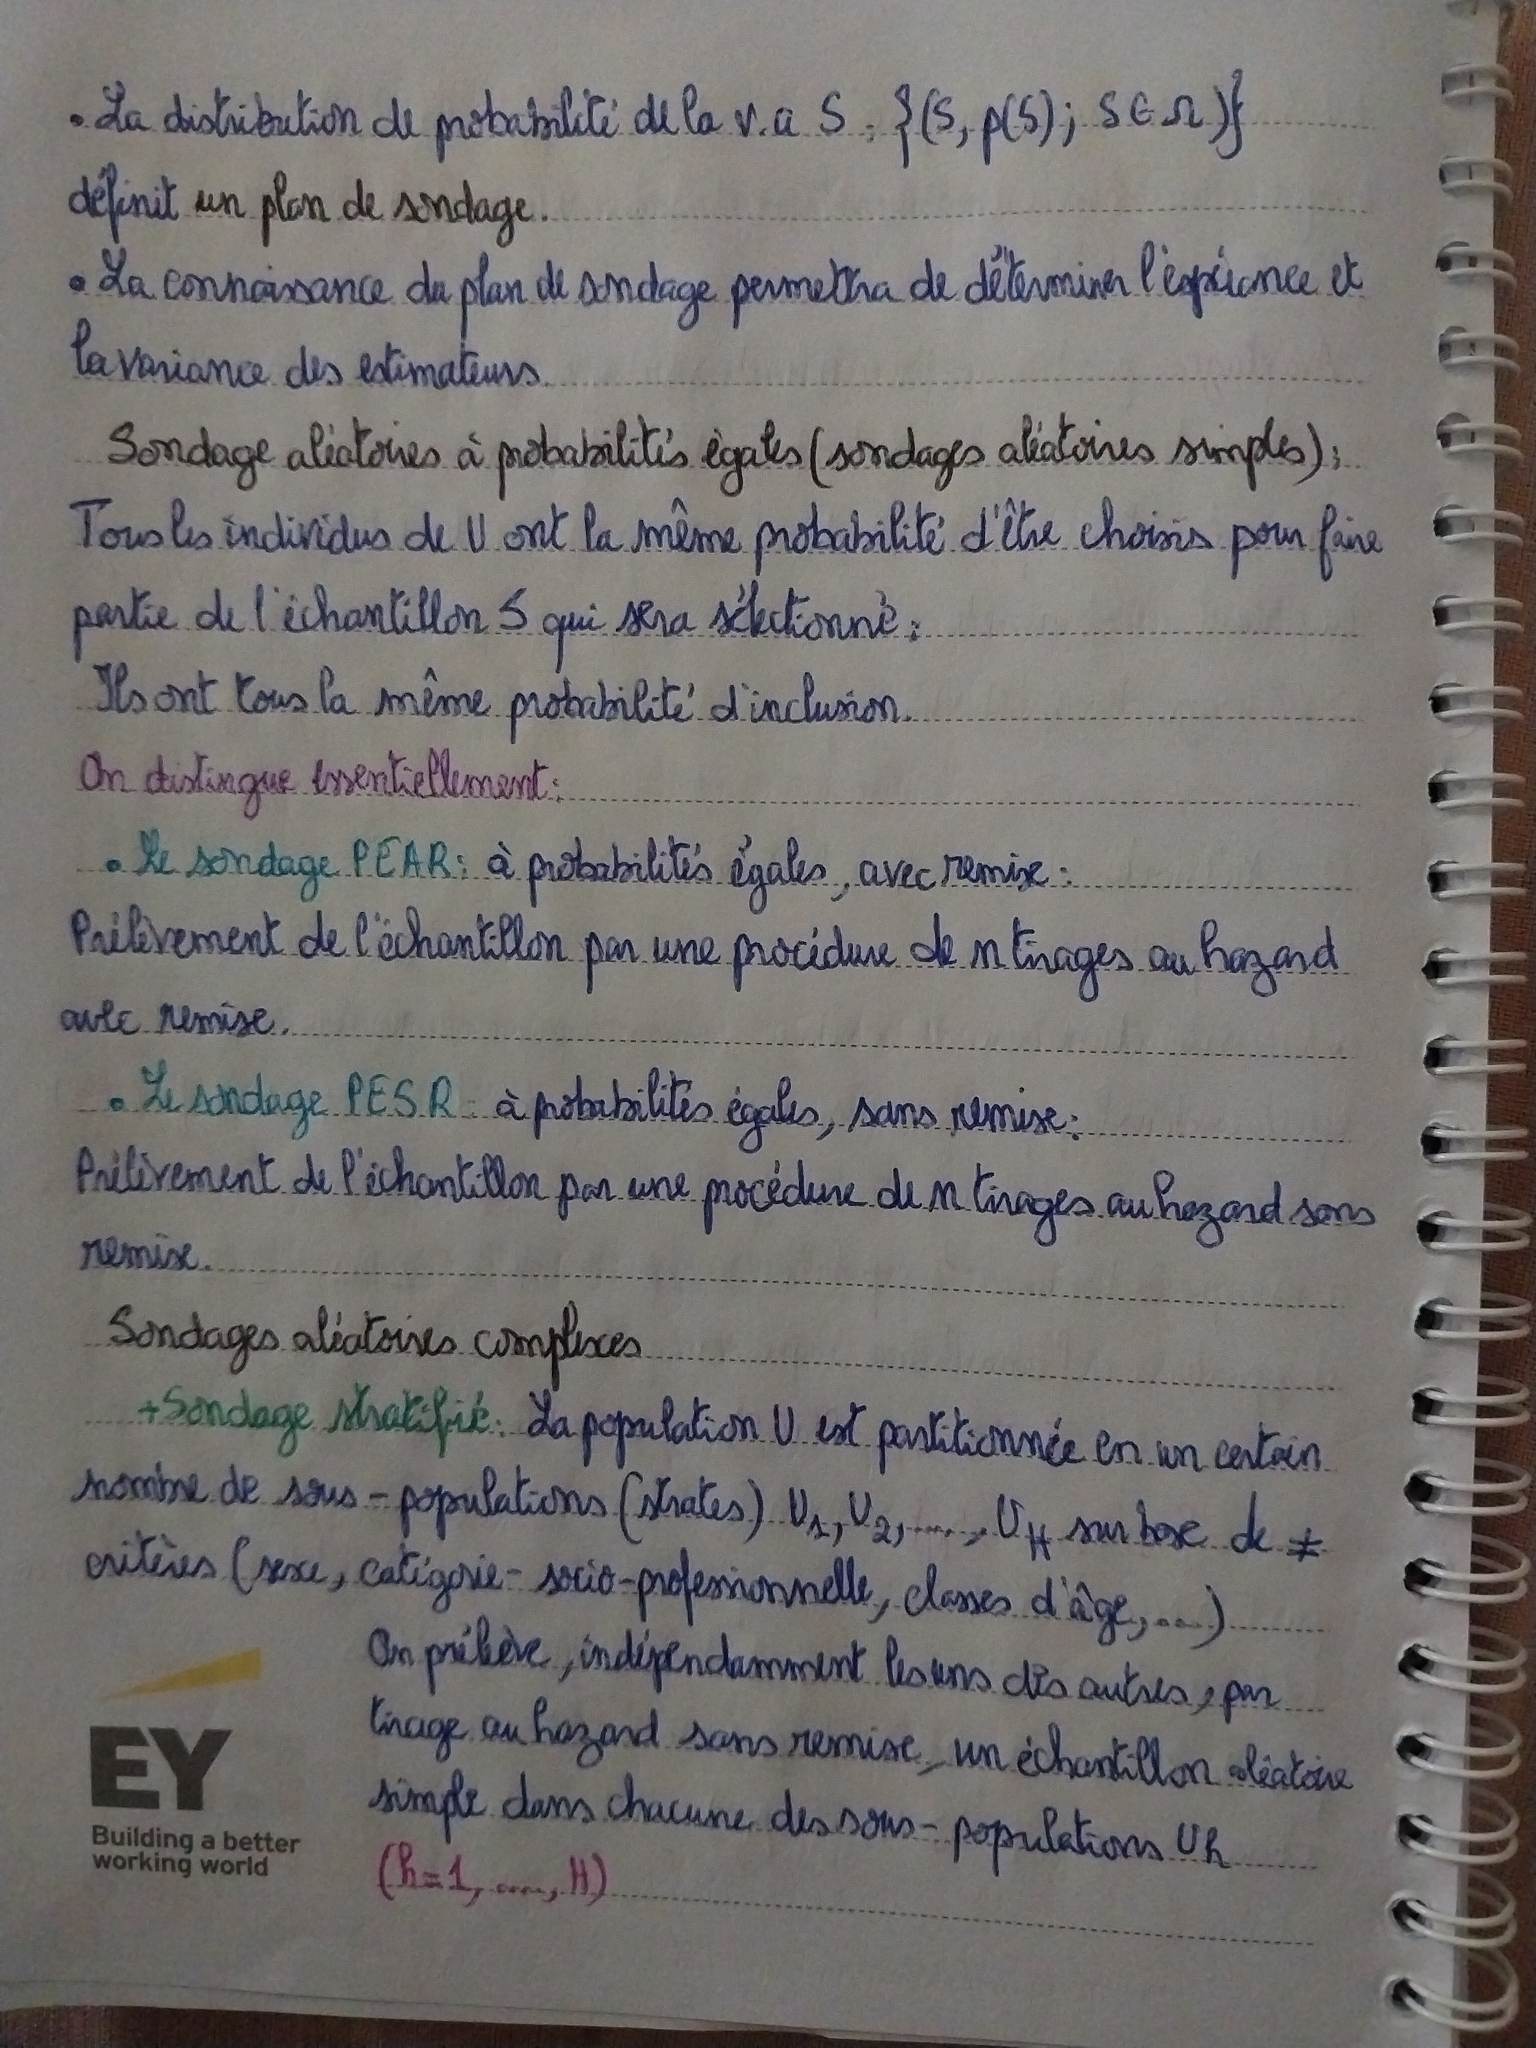 • La distribution de probabilité de la v.a S : {(S, p(S); S ∈ Ω)}
définit un plan de sondage.
• La connaissance du plan de sondage permettra de déterminer l'espérance et
la variance des estimateurs.
Sondage aléatoires à probabilités égales (sondages aléatoires simples):
Tous les individus de U ont la même probabilité d'être choisis pour faire
partie de l'échantillon S qui sera sélectionné:
Ils ont tous la même probabilité d'inclusion.
On distingue essentiellement:
• Le sondage PEAR: à probabilités égales, avec remise:
Prélèvement de l'échantillon par une procédure de n tirages au hazard
avec remise.
• Le sondage PESR: à probabilités égales, sans remise:
Prélèvement de l'échantillon par une procédure de n tirages au hazard sans
remise.
Sondages aléatoires complexes
+ Sondage stratifié: La population U est partitionnée en un certain
nombre de sous-populations (strates) U1, U2, ...., UH sur base de ≠
critères (sexe, catégorie-socio-professionnelle, classes d'âge, ...)
On prélève, indépendamment les uns des autres, par
tirage au hazard sans remise, un échantillon aléatoire
simple dans chacune des sous-populations Uh
(h=1, ...., H)
EY
Building a better
working world